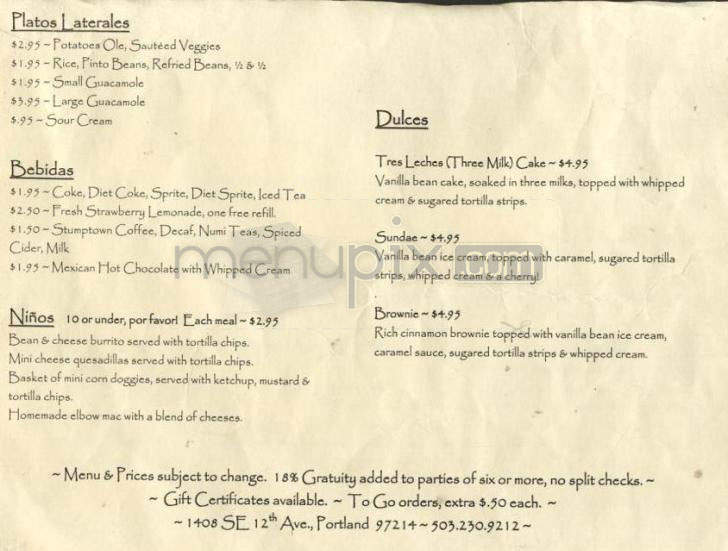 Platos Laterales
$2.95 ~ Potatoes Ole, Sautéed Veggies
$1.95 ~ Rice, Pinto Beans, Refried Beans, ½ & ½
$1.95 ~ Small Guacamole
$3.95 ~ Large Guacamole
$.95 ~ Sour Cream
Bebidas
$1.95 ~ Coke, Diet Coke, Sprite, Diet Sprite, Iced Tea
$2.50 ~ Fresh Strawberry Lemonade, one free refill.
$1.50 ~ Stumptown Coffee, Decaf, Numi Teas, Spiced
Cider, Milk
$1.95 ~ Mexican Hot Chocolate with Whipped Cream
Niños 10 or under, por favor! Each meal ~ $2.95
Bean & cheese burrito served with tortilla chips.
Mini cheese quesadillas served with tortilla chips.
Basket of mini corn doggies, served with ketchup, mustard &
tortilla chips.
Homemade elbow mac with a blend of cheeses.
Dulces
Tres Leches (Three Milk) Cake ~ $4.95
Vanilla bean cake, soaked in three milks, topped with whipped
cream & sugared tortilla strips.
Sundae ~ $4.95
Vanilla bean ice cream, topped with caramel, sugared tortilla
strips, whipped cream & a cherry!
Brownie ~ $4.95
Rich cinnamon brownie topped with vanilla bean ice cream,
caramel sauce, sugared tortilla strips & whipped cream.
menupix.com
~ Menu & Prices subject to change. 18% Gratuity added to parties of six or more, no split checks. ~
~ Gift Certificates available. ~ To Go orders, extra $.50 each. ~
~ 1408 SE 12th Ave., Portland 97214 ~ 503.230.9212 ~